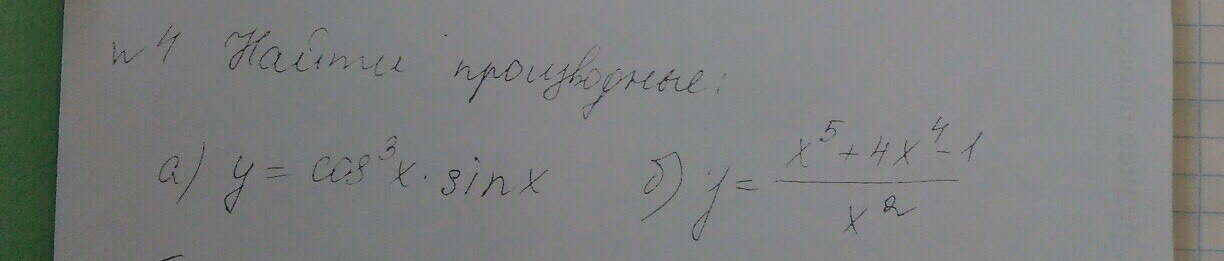 №4 Найти производные:
а) y = cos³x · sinx б) y = (x⁵+4x⁴-1)/x²